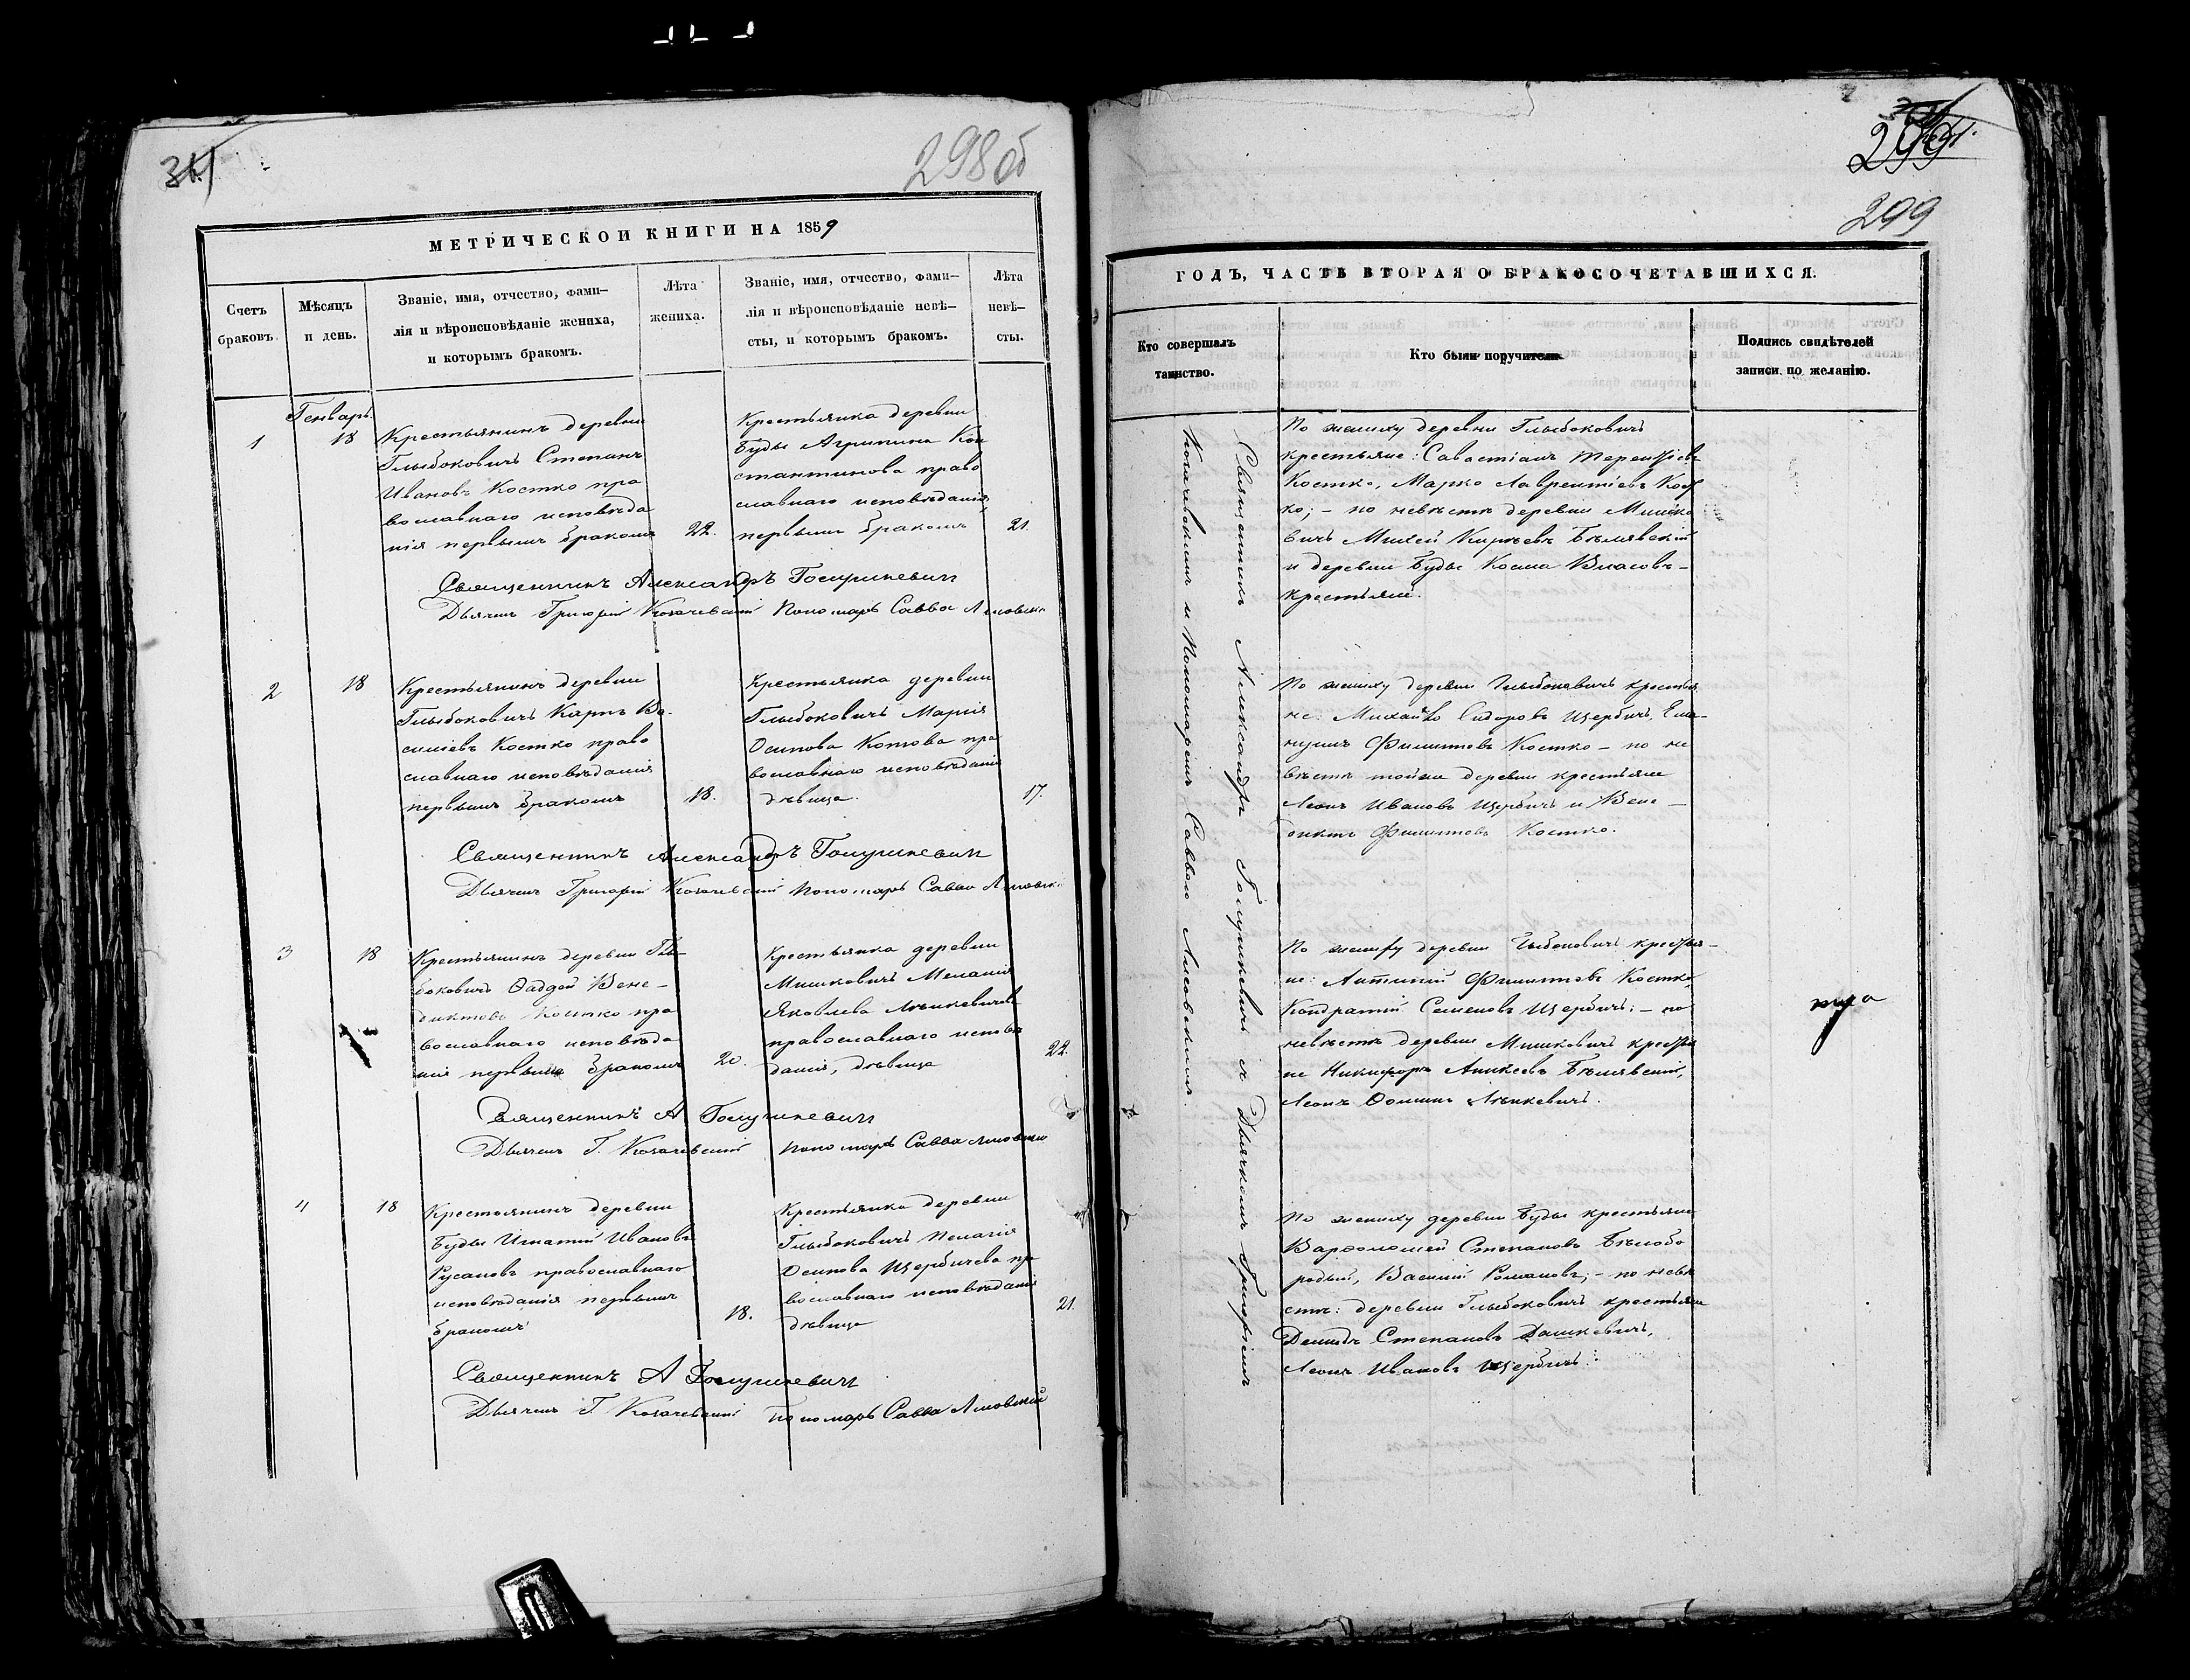 298 об
МЕТРИЧЕСКОИ КНИГИ НА 1859
Счетъ браковъ.
Мѣсяцъ и день.
Званіе, имя, отчество, фами-
лія и вѣроисповѣданіе жениха,
и которымъ бракомъ.
Лѣта жениха.
Званіе, имя, отчество, фами-
лія и вѣроисповѣданіе невѣ-
сты, и которымъ бракомъ.
Лѣта невѣ-
сты.
Генварь
1
18
Крестьянинъ деревни
Глыбоковичъ Степанъ
Ивановъ Костко пра
вославнаго исповѣда
нія первымъ бракомъ
22.
Крестьянка деревни
Буды Агрипина Кон
стантинова право
славнаго исповѣданія,
первымъ бракомъ
21.
Священникъ Александръ Голушкевич
Дьячекъ Григорій Пономарь Савва
2
18
Крестьянинъ деревни
Глыбоковичъ Карпъ Ва-
силіевъ Костко право
славнаго исповѣданія
первымъ бракомъ
18.
Крестьянка деревни
Глыбоковичъ Марія
Осипова Котова пра
вославнаго исповѣданія
дѣвица.
17.
Священникъ Александръ Голушкевич
Дьячекъ Григорій Пономарь Савва
3
18
Крестьянинъ деревни Глы-
боковичъ Фаддей Вене-
диктовъ Костко пра
вославнаго исповѣда
нія первымъ бракомъ
20.
Крестьянка деревни
Мишковичъ Меланія
Яковлева
православнаго исповѣ
данія, дѣвица
22.
Священникъ А Голушкевич
Дьячекъ Г. Пономарь Савва
4
18
Крестьянинъ деревни
Буды Игнатій Ивановъ
Русановъ православнаго
исповѣданія первымъ
бракомъ
18.
Крестьянка деревни
Глыбоковичъ Пелагія
Осипова Щербичева пра
вославнаго исповѣданія
дѣвица
21.
Священникъ А Голушкевич
Дьячекъ Г. Пономарь Савва
299
299
ГОДЪ, ЧАСТЬ ВТОРАЯ О БРАКОСОЧЕТАВШИХСЯ.
Кто совершалъ таинство.
Кто были поручители.
Подпись свидѣтелей
записи по желанію.
Священникъ Александръ Голушкевичъ съ Дьячкомъ Григоріемъ
и Пономаремъ Саввою
По жениху деревни Глыбоковичъ
крестьяне: Савостіанъ Терентіевъ
Костко, Марко Лаврентіевъ Кост
ко; – по невѣстѣ деревни Мишко
вичъ Михей Бѣлявскій
и деревни Буды Косма Власовъ –
крестьяне.
По жениху деревни Глыбоковичъ крестья
не: Михайло Сидоровъ Щербичъ, Ема-
нуилъ Филиповъ Костко – по не
вѣстѣ тойже деревни крестьяне
Леонъ Ивановъ Щербичъ и Вене –
диктъ Филиповъ Костко.
По жениху деревни Глыбоковичъ крестья-
не: Филиповъ Костко,
Кондратій Семеновъ Щербичъ; – по
невѣстѣ деревни Мишковичъ крестья
не Никифоръ Бѣлявскій,
Леонъ Фоминъ
По жениху деревни Буды крестьяне
Варфоломей Степановъ Бѣлобо
родый, Василій Романовъ; – по невѣ
стѣ: деревни Глыбоковичъ крестьяне
Демидъ Степановъ Дашкевичъ,
Леонъ Ивановъ Щербичъ.